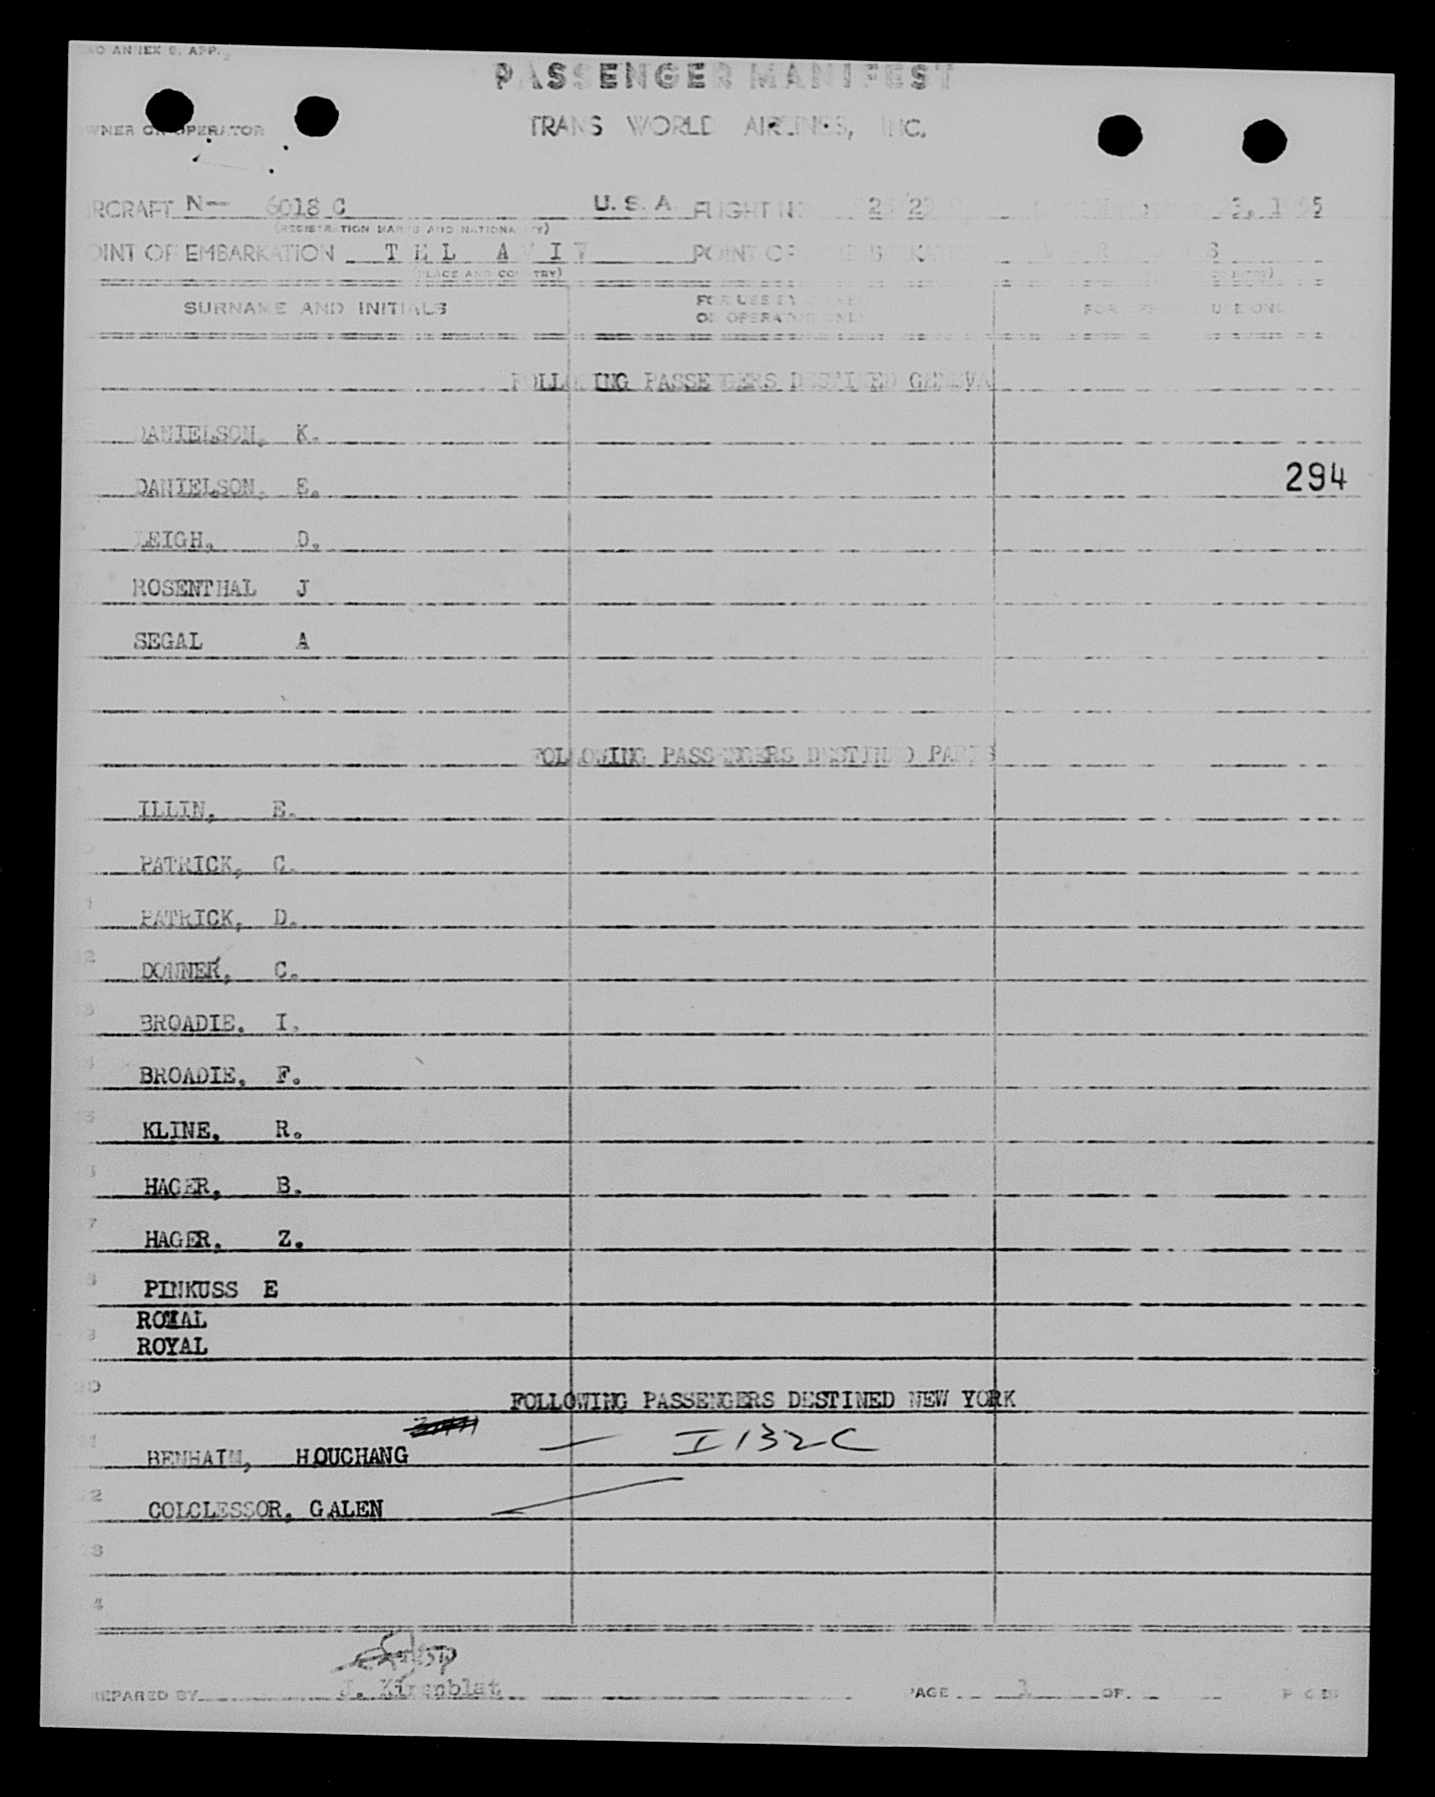 ANNEX 9, APP. 2
PASSENGER MANIFEST
OWNER OR OPERATOR TRANS WORLD AIRLINES, INC.
AIRCRAFT N— 6018 C U. S. A. FLIGHT
(REGISTRATION MARKS AND NATIONALITY)
POINT OF EMBARKATION TEL AVIV POINT OF
(PLACE AND COUNTRY)
SURNAME AND INITIALS FOR USE BY OWNER OR OPERATOR ONLY FOR USE ONLY
FOLLOWING PASSENGERS DESTINED GENEVA
DANIELSON, K.
DANIELSON, E.
294
LEIGH, D.
ROSENTHAL J
SEGAL A
FOLLOWING PASSENGERS DESTINED PARIS
ILLIN, E.
PATRICK, C.
PATRICK, D.
12 DONNER, C.
BROADIE, I.
BROADIE, F.
KLINE, R.
HAGER, B.
7 HAGER, Z.
PINKUSS E
ROYAL
ROYAL
20 FOLLOWING PASSENGERS DESTINED NEW YORK
BENHAIM, HOUCHANG — I132C
22 COLCLESSOR, GALEN
23
4
J. Kirenblat
PREPARED BY PAGE 1 OF PAGES